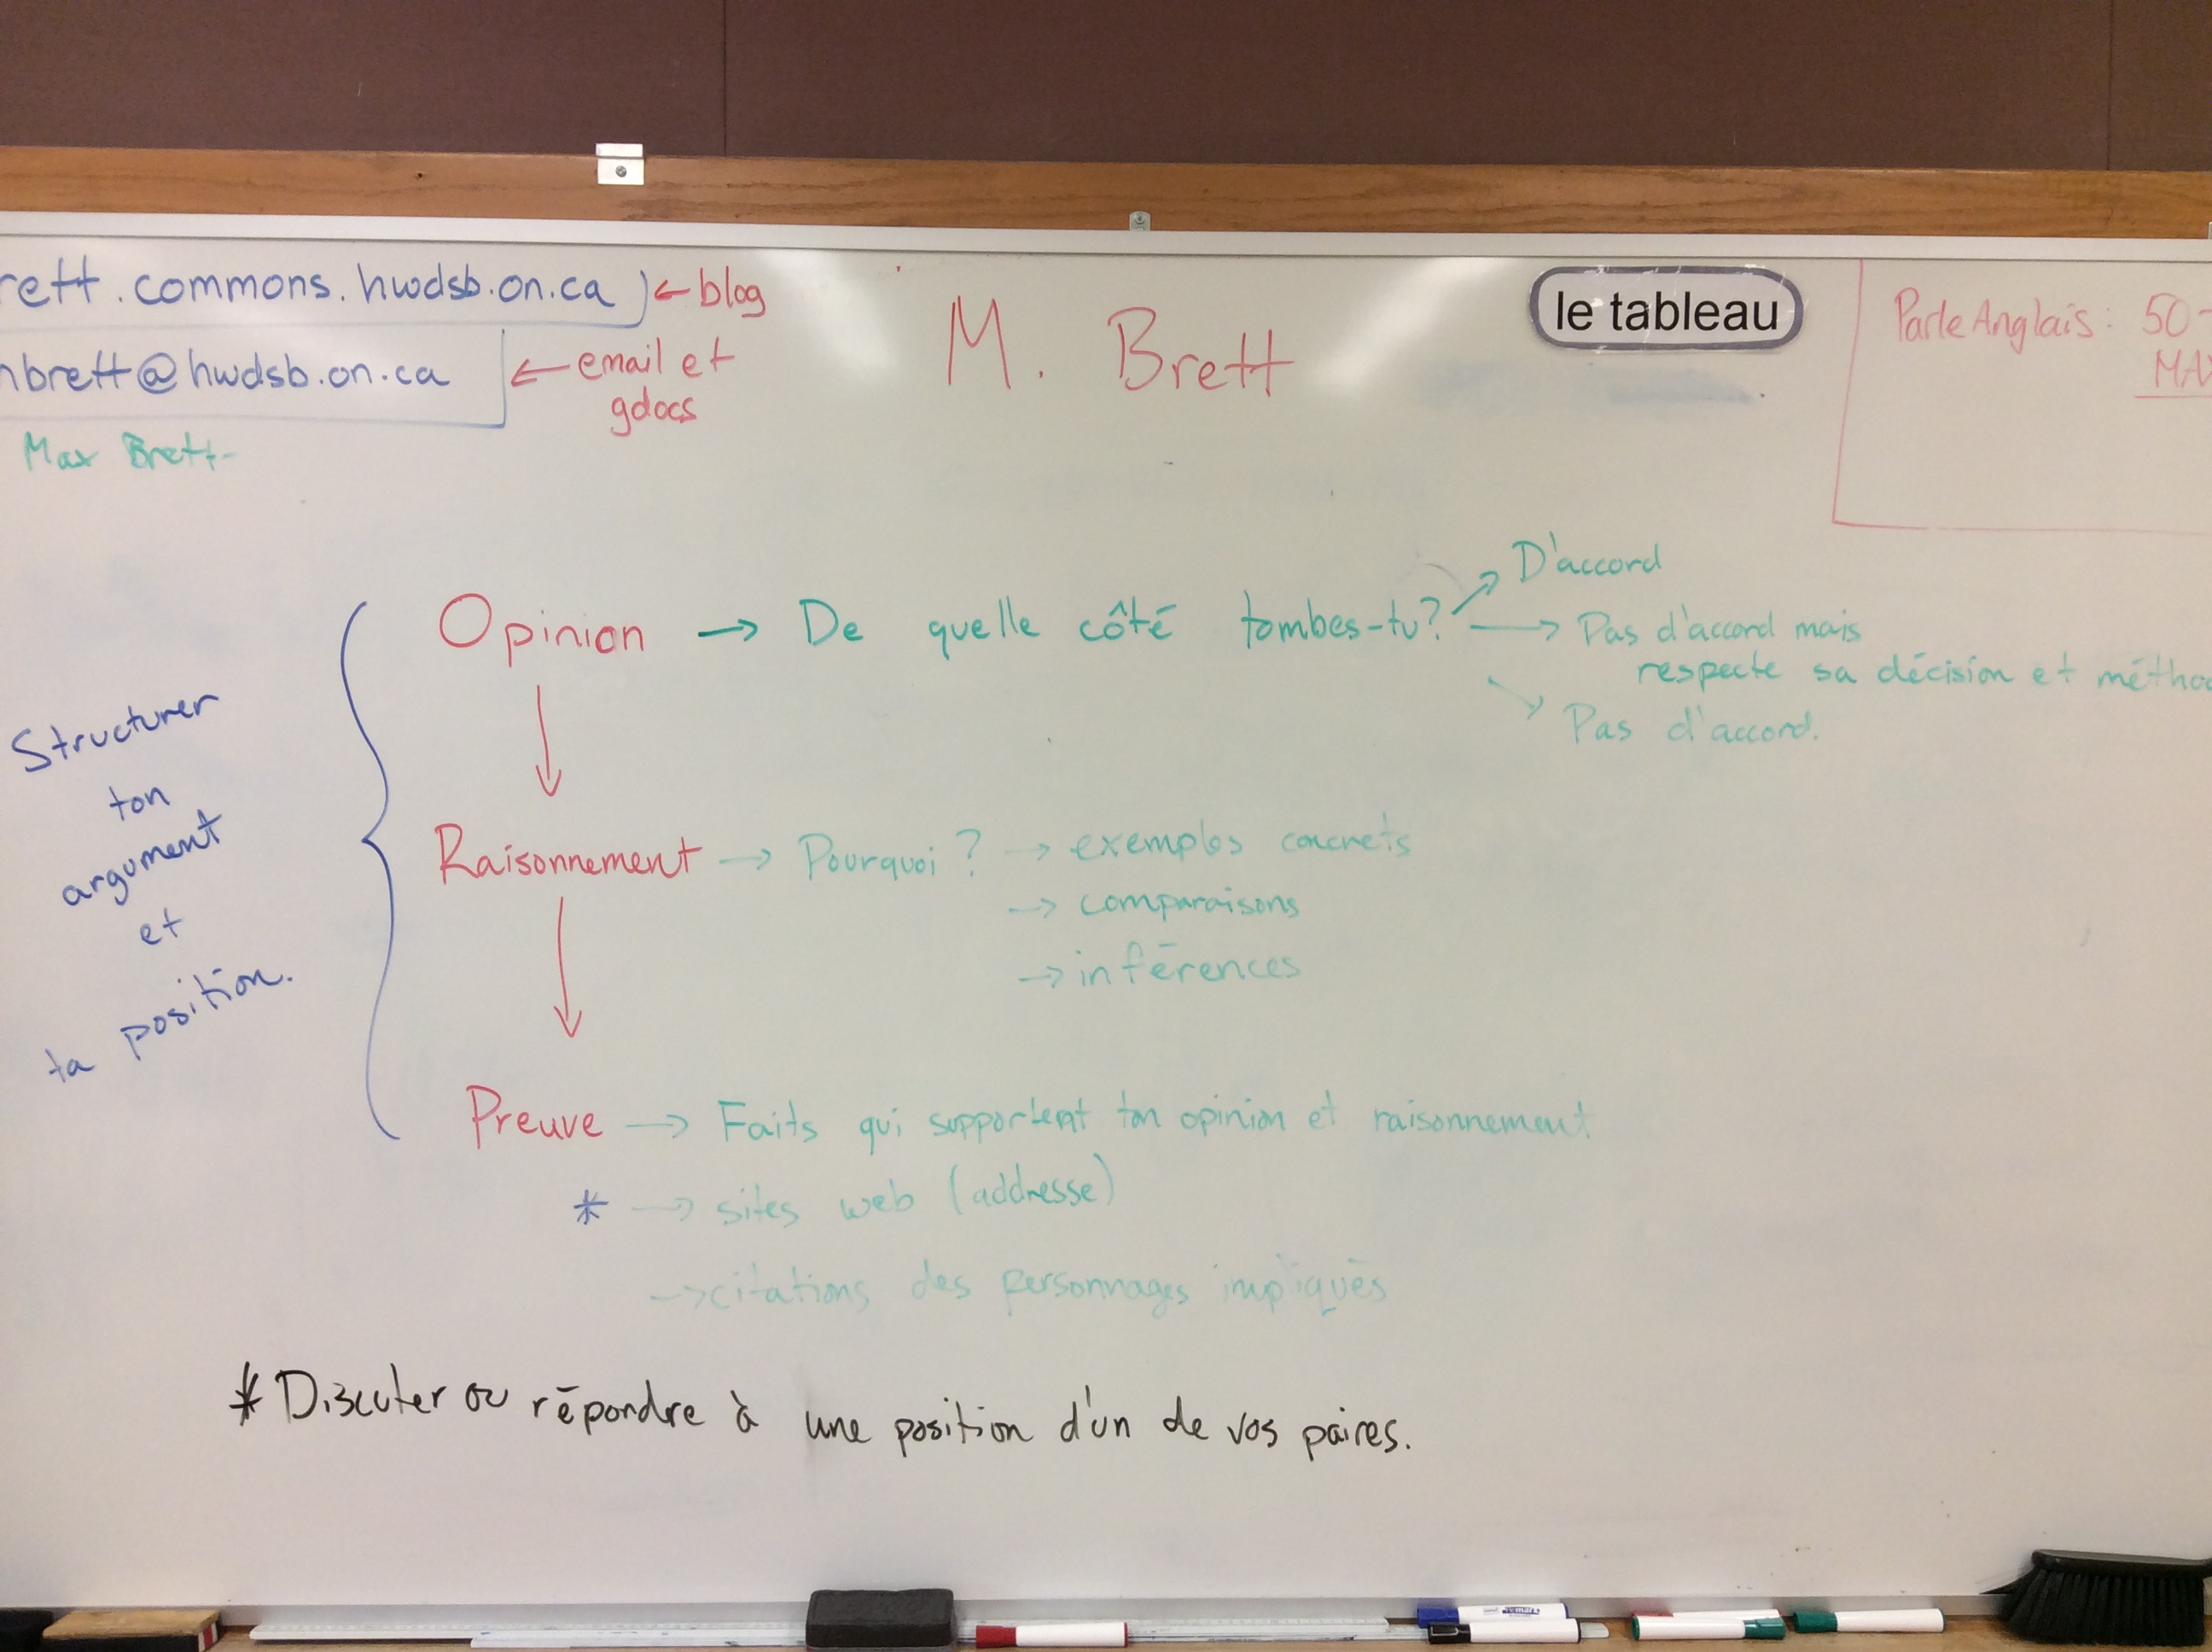 rett.commons.hwdsb.on.ca ← blog
nbrett@hwdsb.on.ca ← email et
gdocs
Max Brett
M. Brett
le tableau
Parle Anglais: 50
Structurer
ton
argument
et
ta position.
Opinion → De quelle côté tombes-tu?
→ D'accord
→ Pas d'accord mais
respecte sa décision et
→ Pas d'accord.
Raisonnement → Pourquoi? → exemples concrets
→ comparaisons
→ inférences
Preuve → Faits qui supportent ton opinion et raisonnement
* → sites web (addresse)
→ citations des personnages impliqués
* Discuter ou répondre à une position d'un de vos paires.